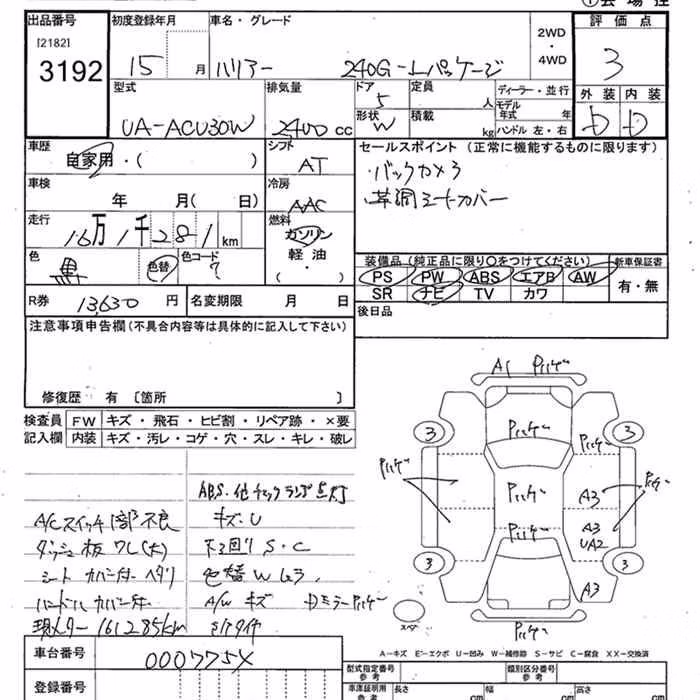 出品番号 初度登録年月 車名・グレード 2WD・4WD 評価点
[2182]
3192 15 月 ハリアー 240G-Lパッケージ 3
型式 排気量 ドア 5 定員 人 ディーラー・並行 外装 内装
UA-ACU30W 2400 cc 形状 W 積載 kg モデル年式 年 ハンドル 左・右 D D
車歴 自家用・( ) シフト AT セールスポイント (正常に機能するものに限ります)
・バックカメラ
車検 年 月( 日) 冷房 AAC ・革調シートカバー
走行 16万1千281km 燃料 ガソリン
軽油
・
( )
色 黒 色替 色コード ? 装備品 (純正品に限り○をつけてください) 新車保証書
PS PW ABS エアB AW 有・無
SR ナビ TV カワ
R券 13,630 円 名変期限 月 日 後日品
注意事項申告欄(不具合内容等は具体的に記入して下さい)
修復歴 有 〔箇所 〕
検査員 FW キズ・飛石・ヒビ割・リペア跡・×要
記入欄 内装 キズ・汚レ・コゲ・穴・スレ・キレ・破レ
ABS・他チェックランプ点灯
A/Cスイッチ1部不良 キズ・U
ダッシュ板ワレ(大) 下回りS・C
シートカバー付ヘタリ 色替Wムラ
ハンドルカバー付 A/Wキズ
現メーター161285km
A1
3 3
A3
A3
UA2
3 3
A3
A-キズ E-エクボ U-凹み W-補修跡 S-サビ C-腐食 XX-交換済
車台番号 0007754 型式指定番号 参考 類別区分番号 参考
登録番号 車庫証明用 参考 長さ cm 幅 cm 高さ cm